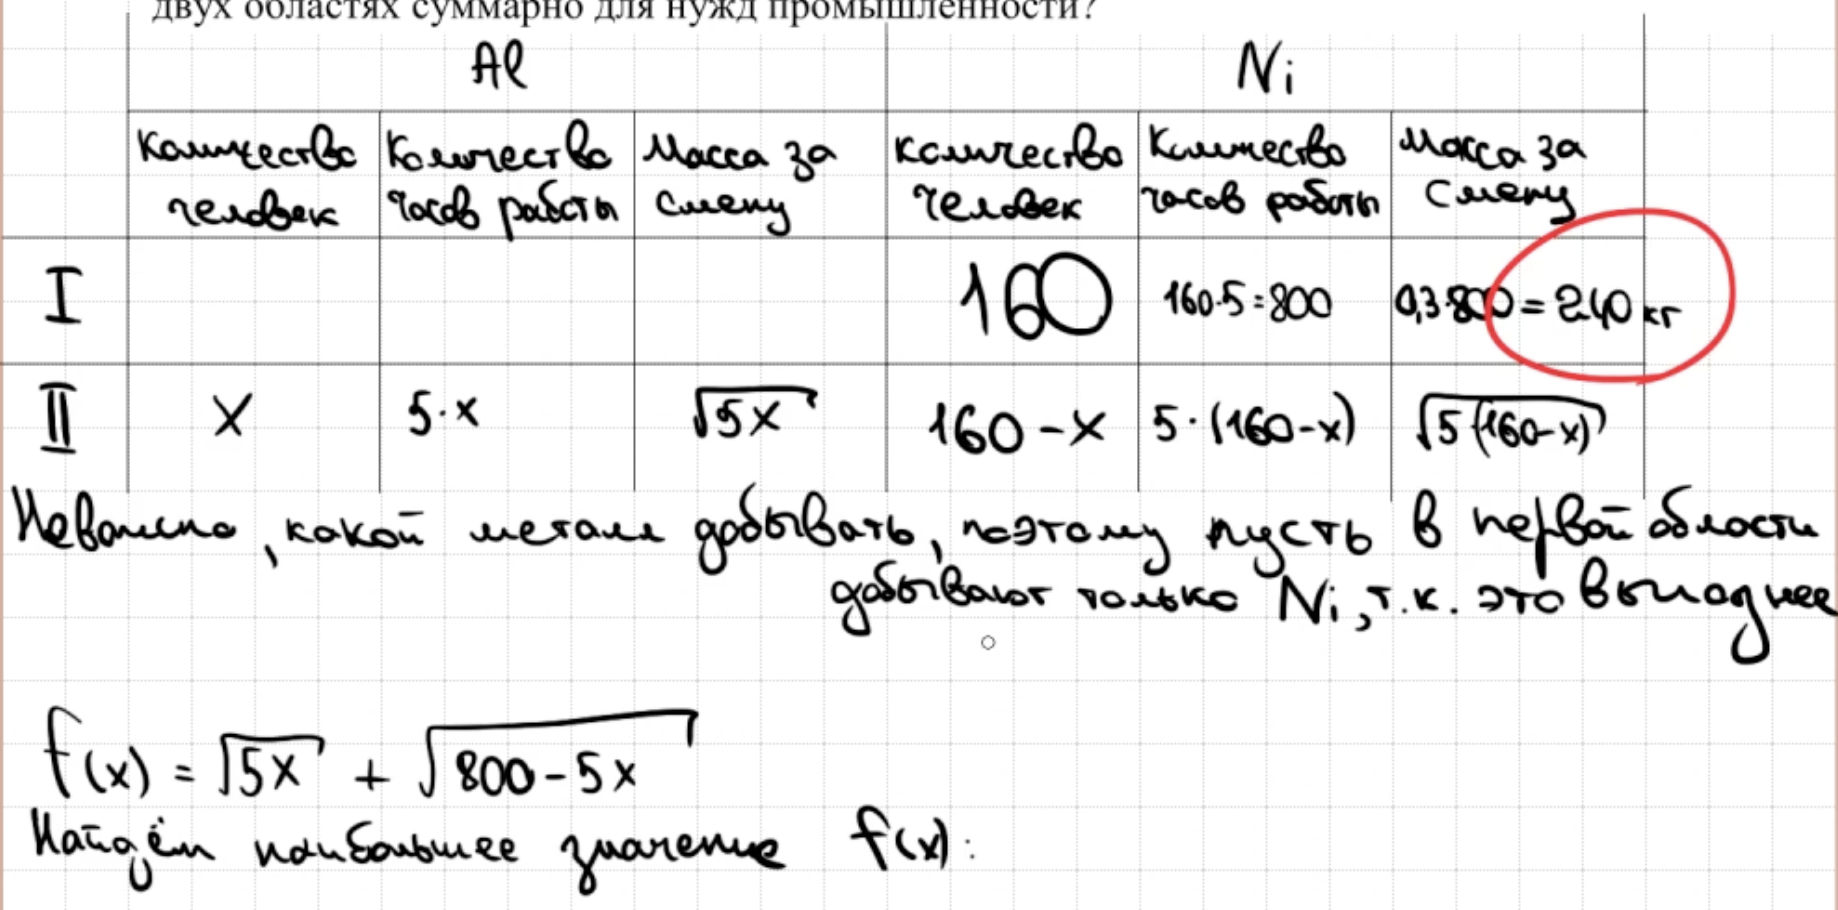 двух областях суммарно для нужд промышленности?
Al Ni
Количество человек Количество часов работы Масса за смену Количество человек Количество часов работы Масса за смену
I 160 160·5=800 0,3·800=240 кг
II x 5·x √5x 160-x 5·(160-x) √5(160-x)
Неважно, какой металл добывать, поэтому пусть в первой области
добывают только Ni, т.к. это выгоднее
f(x) = √5x + √800-5x
Найдём наибольшее значение f(x):